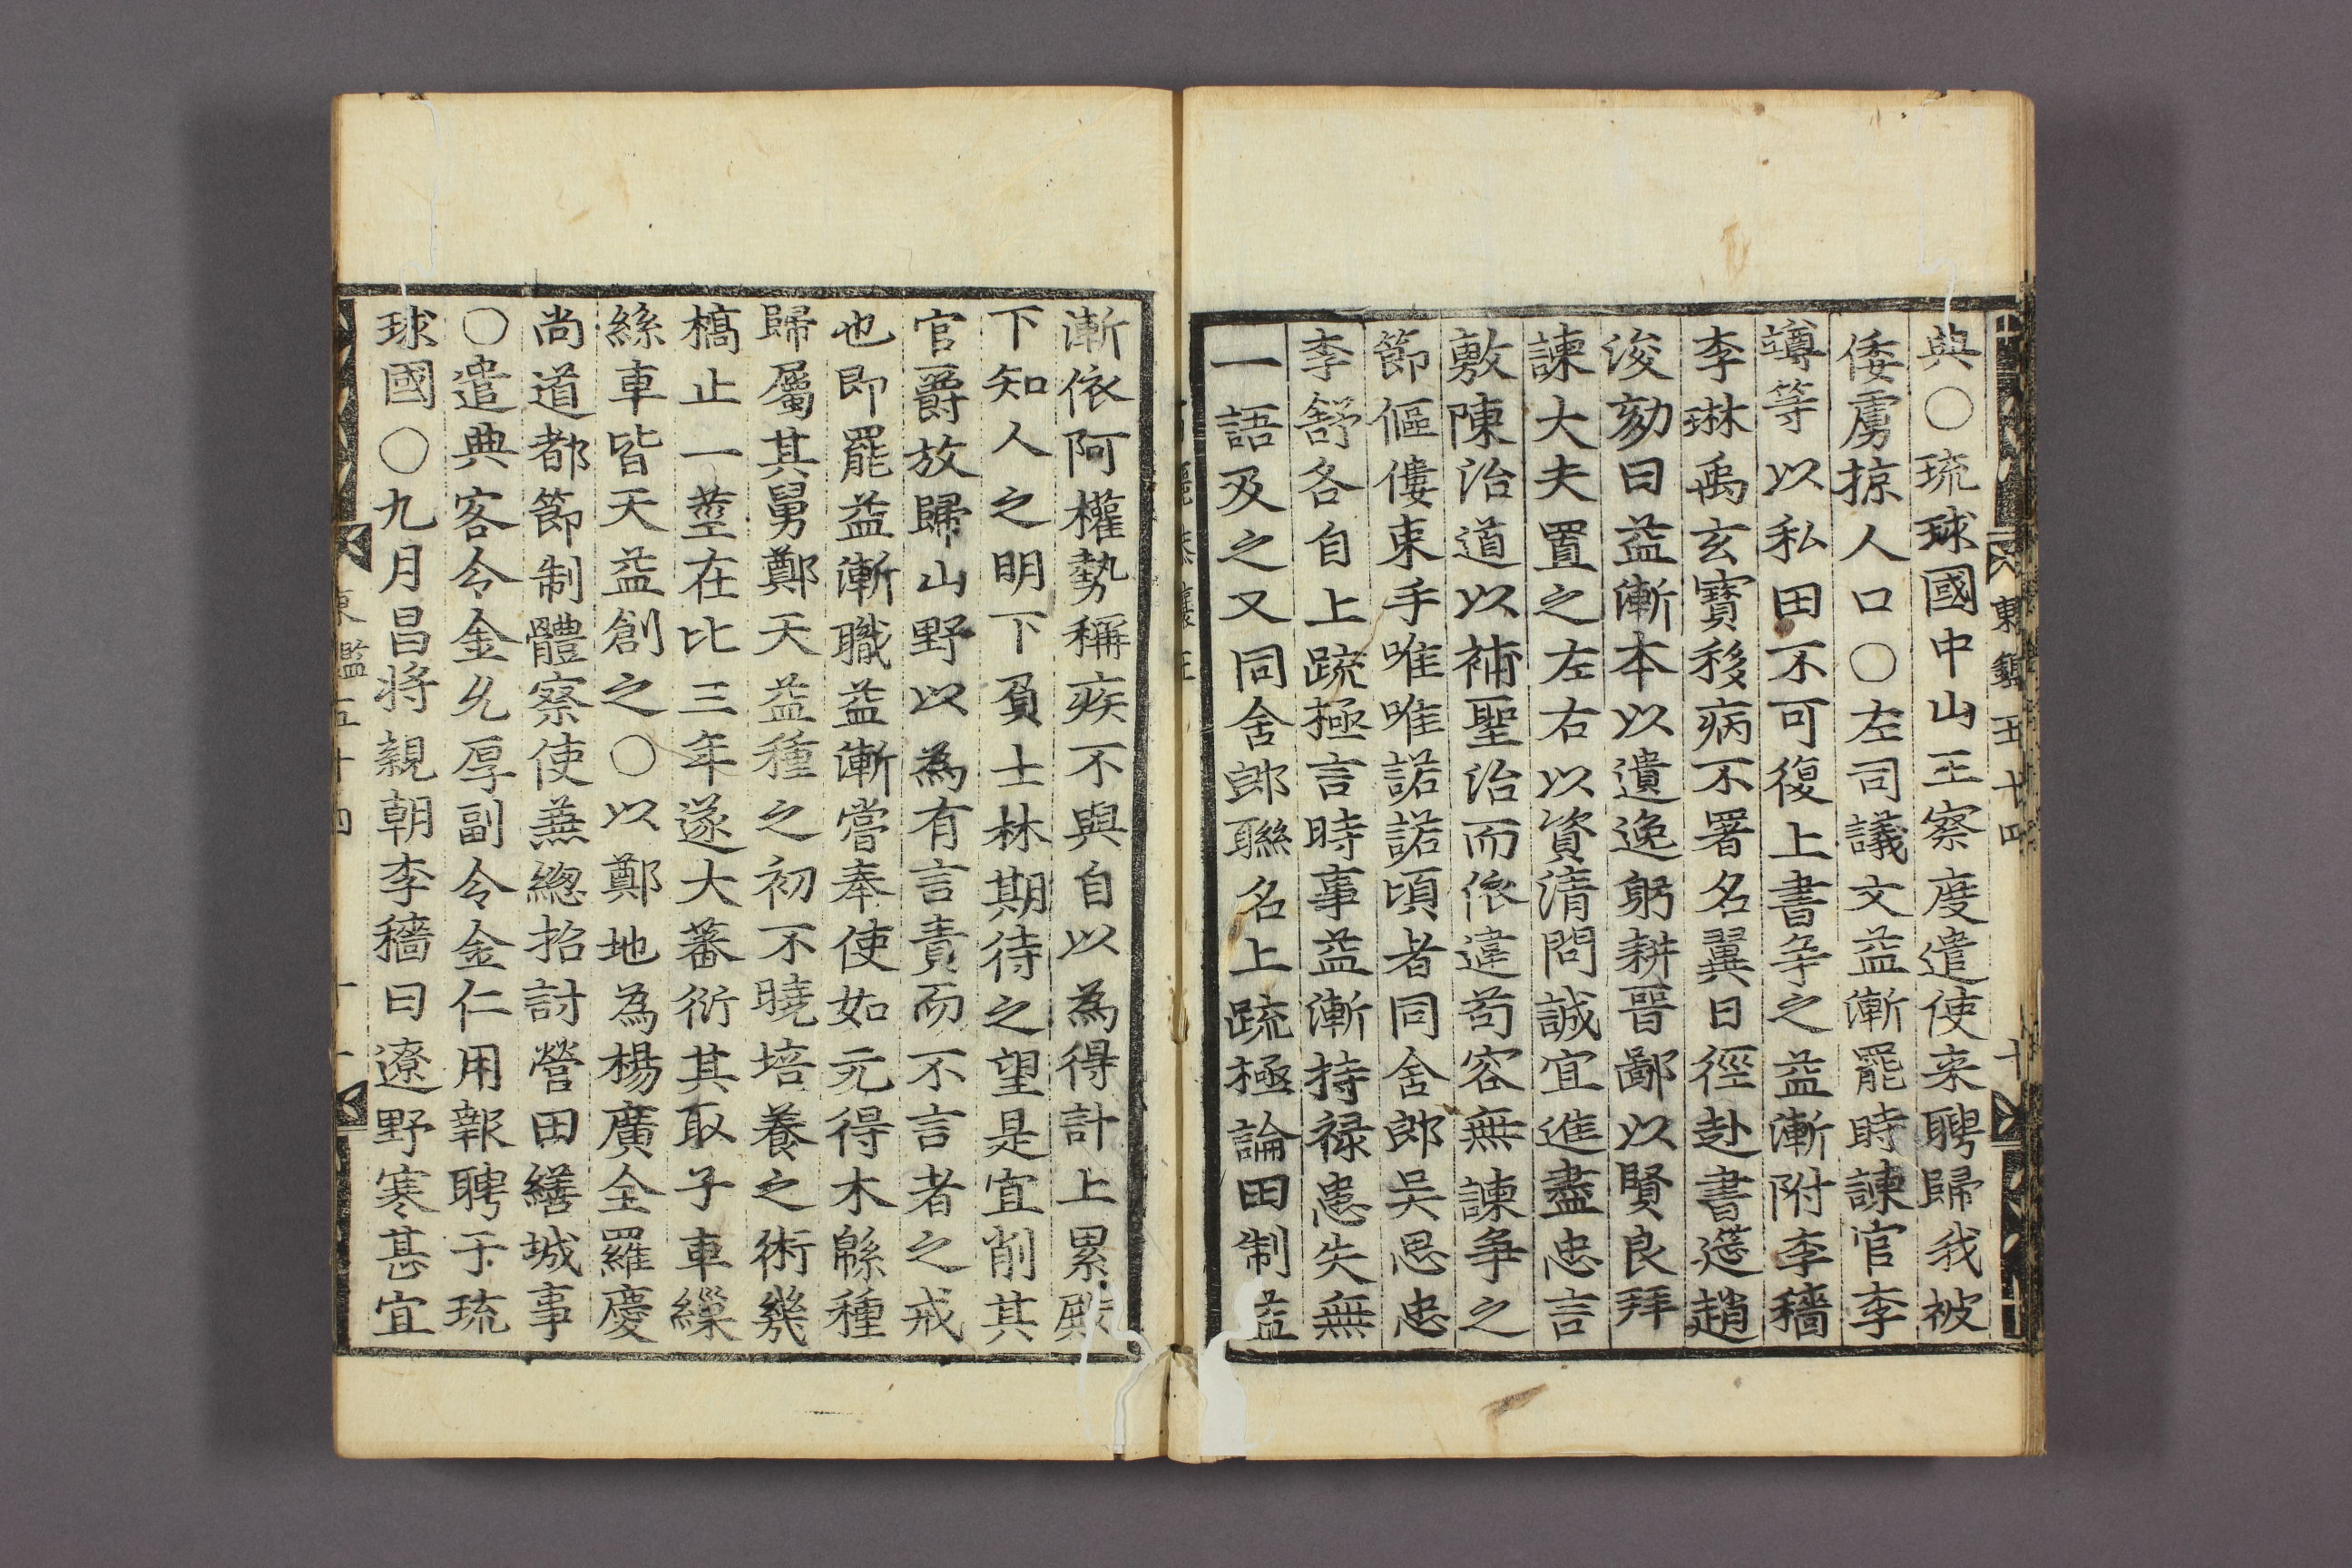 東鑑五十四
十
典〇琉球國中山王察度遣使来聘歸我被
倭虜掠人口〇左司議文益漸罷時諫官李
竴等以私田不可復上書争之益漸附李穡
李琳禹玄寶移病不署名翼日徑赴書筵趙
浚劾曰益漸本以遺逸躬耕晉鄙以賢良拜
諫大夫置之左右以資清問誠宜進盡忠言
敷陳治道以補聖治而依違苟容無諫争之
節傴僂束手唯唯諾諾頃者同舍郎吴思忠
李舒各自上疏極言時事益漸持禄患失無
一語及之又同舍郎聯名上疏極論田制益
漸依阿權勢稱疾不與自以為得計上累殿
下知人之明下負士林期待之望是宜削其
官爵放歸山野以為有言責而不言者之戒
也即罷益漸職益漸嘗奉使如元得木緜種
歸屬其舅鄭天益種之初不曉培養之術幾
槁止一莖在比三年遂大蕃衍其取子車繅
絲車皆天益創之〇以鄭地為楊廣全羅慶
尚道都節制體察使兼緫招討營田繕城事
〇遣典客令金允厚副令金仁用報聘于琉
球國〇九月昌将親朝李穡曰遼野寒甚宜
東鑑五十四